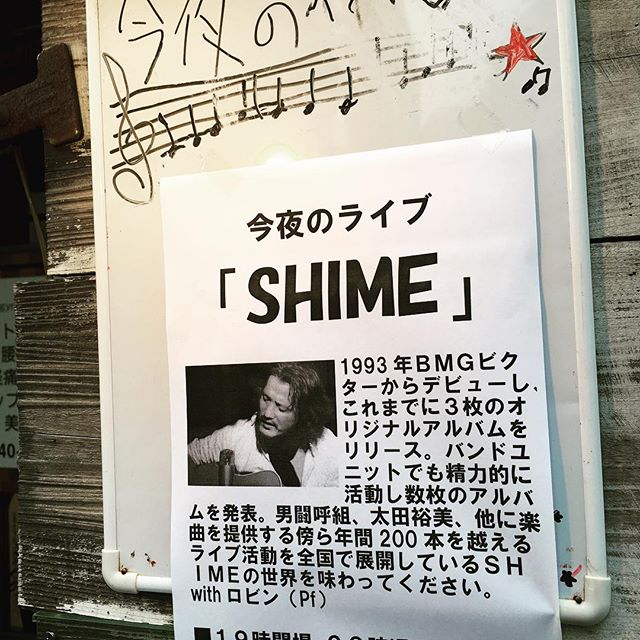 今夜の
今夜のライブ
「SHIME」
1993年BMGビク
ターからデビューし、
これまでに3枚のオ
リジナルアルバムを
リリース。バンドユ
ニットでも精力的に
活動し数枚のアルバ
ムを発表。男闘呼組、太田裕美、他に楽
曲を提供する傍ら年間200本を越える
ライブ活動を全国で展開しているSH
IMEの世界を味わってください。
with ロビン（Pf）
■19時開場
ト
腰
痛
プ
美
40